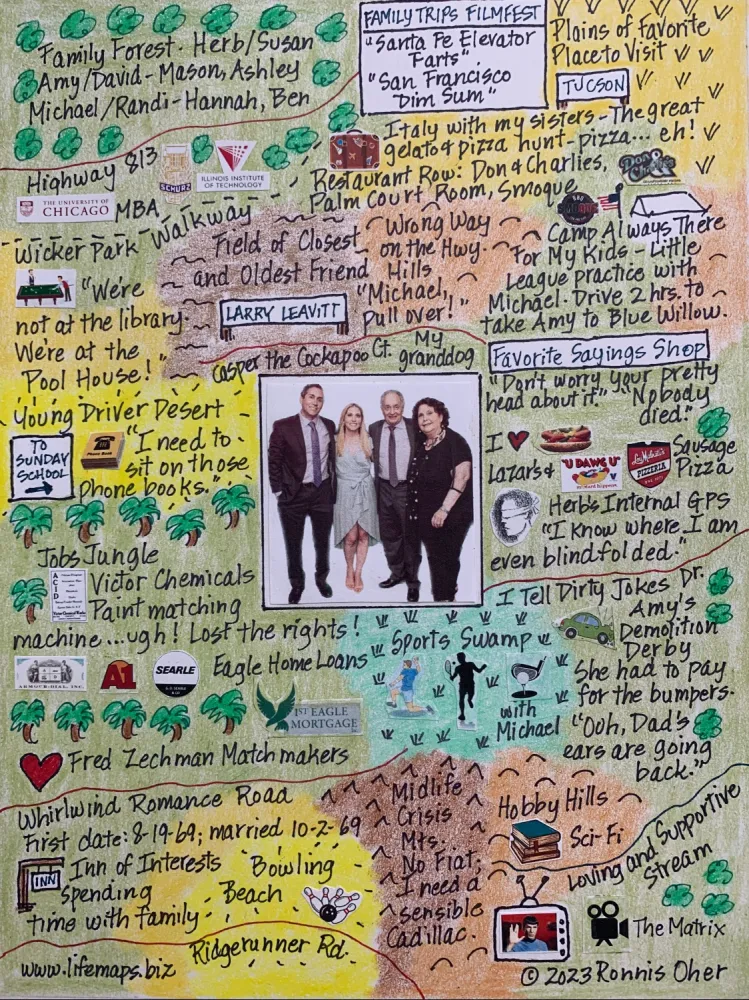 Family Forest. Herb/Susan
Amy/David-Mason, Ashley
Michael/Randi-Hannah, Ben
FAMILY TRIPS FILMFEST
"Santa Fe Elevator
Farts".
"San Francisco
Dim Sum"
Plains of Favorite
Place to Visit
TUCSON
Italy with my sisters-The great
gelato & pizza hunt-pizza... eh!
Restaurant Row: Don & Charlies,
Palm Court Room, Smoque
Don &
Charlie's
Highway 813
SCHURZ
ILLINOIS INSTITUTE
OF TECHNOLOGY
THE UNIVERSITY OF
CHICAGO
MBA
Wicker Park Walkway
"We're
not at the library.
We're at the
Pool House!"
Field of Closest
and Oldest Friend
LARRY LEAVITT
Wrong Way
on the Hwy.
Hills
"Michael,
Pull over!"
Camp Always There
For My Kids-Little
League practice with
Michael. Drive 2 hrs. to
take Amy to Blue Willow.
Casper the Cockapoo Ct. My
granddog
Favorite Sayings Shop
"Don't worry your pretty
head about it." "Nobody
died."
Young Driver Desert
TO
SUNDAY
SCHOOL
Phone Book
"I need to
sit on those
Phone books."
I
Lazar's &
U DAWG U
Lou Malnati's
PIZZERIA
Sausage
Pizza
Herb's Internal GPS
"I know where I am
even blindfolded."
Jobs Jungle
ACID
Victor Chemicals
Paint matching
machine...ugh! Lost the rights!
ARMOUR-DIAL, INC.
A1
SEARLE
Eagle Home Loans
1ST EAGLE
MORTGAGE
Tell Dirty Jokes Dr.
Sports Swamp
with
Michael
Amy's
Demolition
Derby
She had to pay
for the bumpers.
"Ooh, Dad's
ears are going
back."
Fred Zechman Matchmakers
Whirlwind Romance Road
First date: 8-19-69; married 10-2-69
INN
Inn of Interests
spending
time with family
Bowling
Beach
Midlife
Crisis
Mts.
No Fiat;
I need a
sensible
Cadillac.
Hobby Hills
Sci-Fi
Loving and Supportive
Stream
The Matrix
Ridgerunner Rd.
www.lifemaps.biz
© 2023 Ronnis Oher